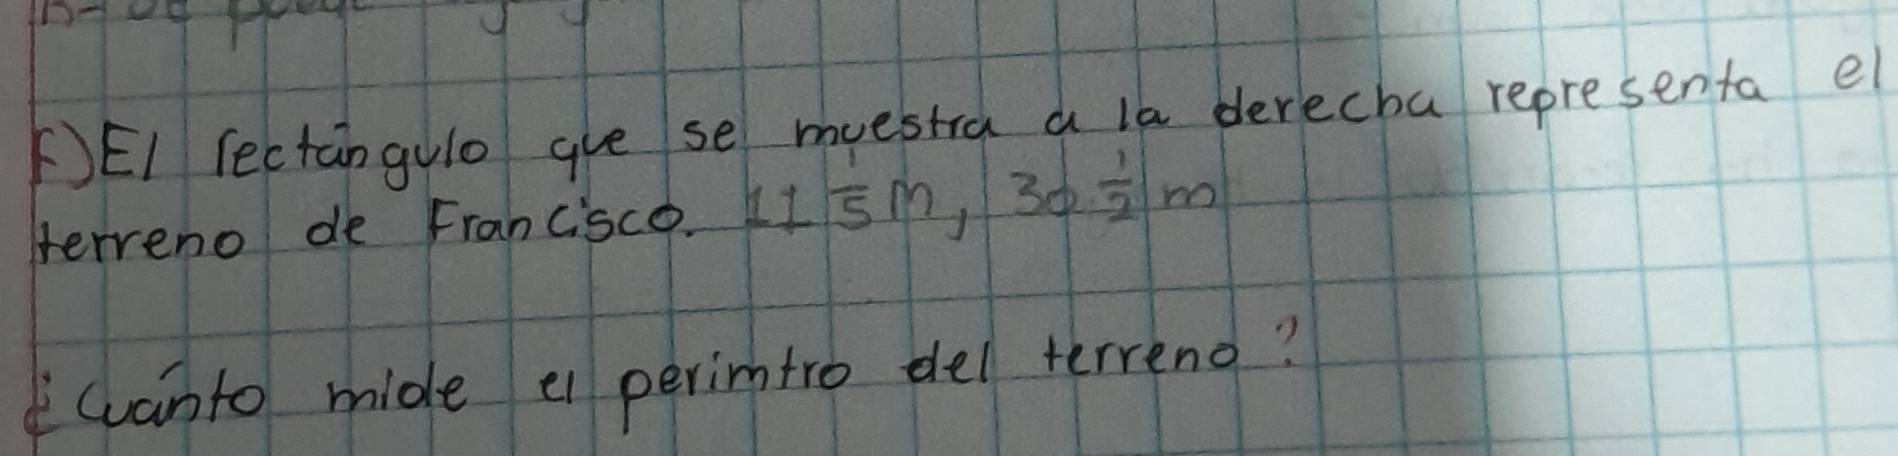 F) El rectángulo que se muestra a la derecha representa el
terreno de Francisco. 11 1/5 m, 30 1/2 m
¿Cuánto mide el perimtro del terreno?